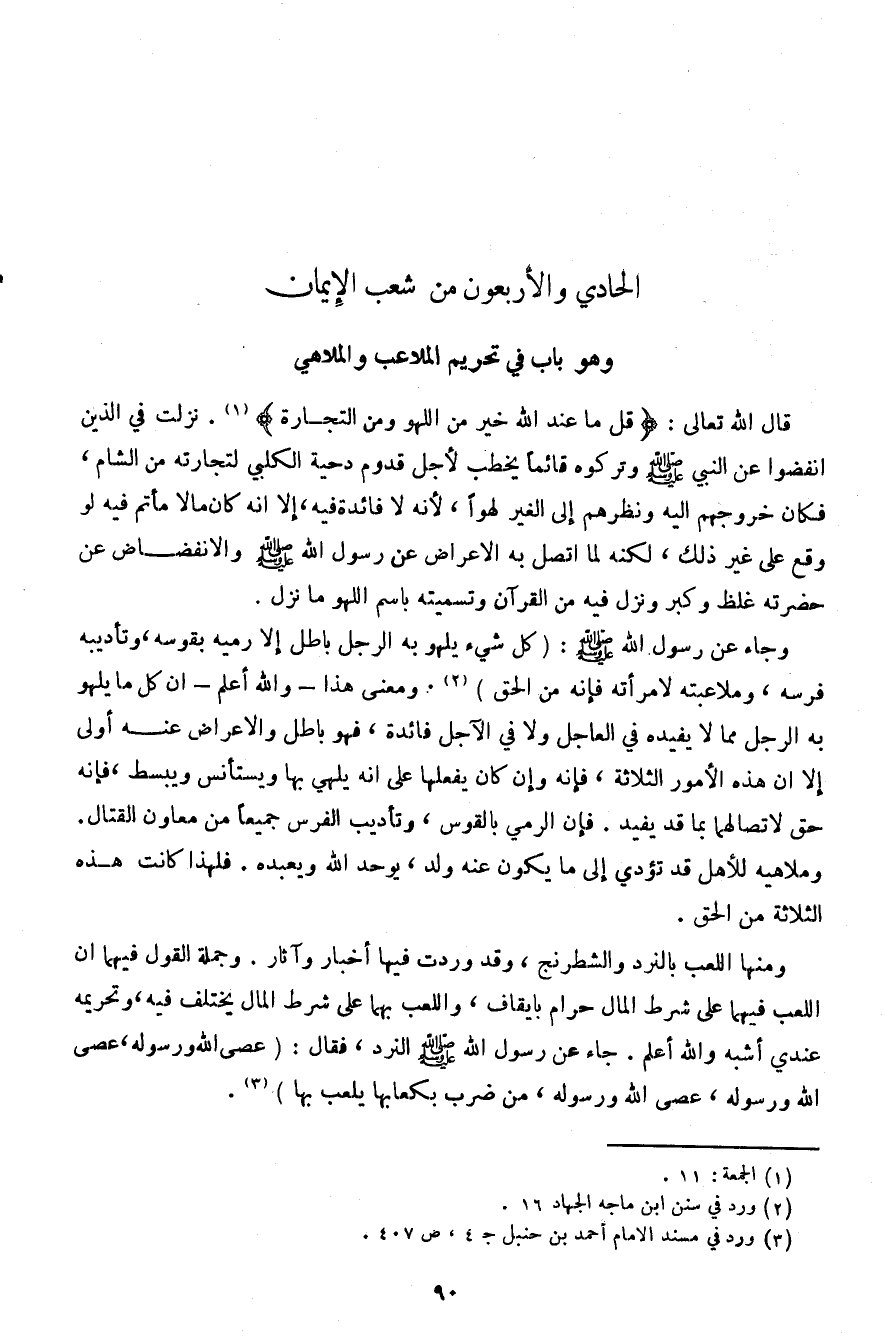 الحادي والأربعون من شعب الإيمان
وهو باب في تحريم الملاعب والملاهي
قال الله تعالى : ﴿ قل ما عند الله خير من اللهو ومن التجـارة ﴾ (١) . نزلت في الذين
انفضوا عن النبي ﷺ وتركوه قائماً يخطب لأجل قدوم دحية الكلبي لتجارته من الشام ،
فكان خروجهم اليه ونظرهم إلى الغير لهواً ، لأنه لا فائدة فيه ، إلا انه كان مالا مأتم فيه لو
وقع على غير ذلك ، لكنه لما اتصل به الاعراض عن رسول الله ﷺ والانفضـــاض عن
حضرته غلظ وكبر ونزل فيه من القرآن وتسميته باسم اللهو ما نزل .
وجاء عن رسول الله ﷺ : ( كل شيء يلهو به الرجل باطل إلا رميه بقوسه ، وتأديبه
فرسه ، وملاعبته لامرأته فإنه من الحق ) (٢) . ومعنى هذا – والله أعلم – ان كل ما يلهو
به الرجل مما لا يفيده في العاجل ولا في الآجل فائدة ، فهو باطل والاعراض عنـــه أولى
إلا ان هذه الأمور الثلاثة ، فإنه وإن كان يفعلها على انه يلهي بها ويستأنس ويبسط ، فإنه
حق لاتصالهما بما قد يفيد . فإن الرمي بالقوس ، وتأديب الفرس جميعاً من معاون القتال .
وملاهيه للأهل قد تؤدي إلى ما يكون عنه ولد ، يوحد الله ويعبده . فلهذا كانت هـذه
الثلاثة من الحق .
ومنها اللعب بالنرد والشطرنج ، وقد وردت فيها أخبار وآثار . وجملة القول فيهما ان
اللعب فيهما على شرط المال حرام بايقاف ، واللعب بهما على شرط المال يختلف فيه ، وتحريمه
عندي أشبه والله أعلم . جاء عن رسول الله ﷺ النرد ، فقال : ( عصى الله ورسوله ، عصى
الله ورسوله ، عصى الله ورسوله ، من ضرب بكعابها يلعب بها ) (٣) .
(١) الجمعة : ١١ .
(٢) ورد في سنن ابن ماجه الجهاد ١٦ .
(٣) ورد في مسند الامام أحمد بن حنبل جـ ٤ ، ص ٤٠٧ .
٩٠